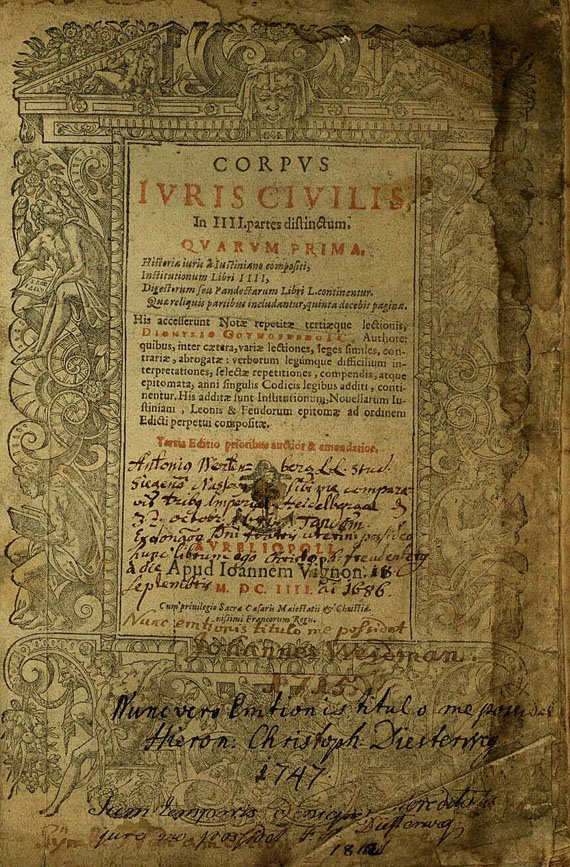 CORPVS
IVRIS CIVILIS,
In IIII. partes distinctum.
QVARVM PRIMA.
Historia iuris à Iustiniano compositi,
Institutionum Libri IIII,
Digestorum seu Pandectarum Libri L. continentur.
Quæ reliquis partibus includantur, quinta docebit pagina.
His accesserunt Notæ repetitæ tertiæque lectionis,
DIONYSIO GOTHOFREDO I.C. Authore:
quibus, inter cætera, variæ lectiones, leges similes, con-
trariæ, abrogatæ: verborum legumque difficilium in-
terpretationes, selectæ repetitiones, compendia, atque
epitomata, anni singulis Codicis legibus additi, conti-
nentur. His additæ sunt Institutionum, Nouellarum Iu-
stiniani, Leonis & Feudorum epitomæ ad ordinem
Edicti perpetui compositæ.
Tertia Editio prioribus auctior & emendatior.
Antonius stud.
sibi me compara
Heidelbergæ
32 octobr. Tandem
AVRELIOPOLI,
hunc librum ego Christoph. freudenberg
à die Apud Ioannem Vignon. 18
Septembris M. DC. IIII. ai 1686.
Cum priuilegio Sacræ Cæsaris Maiestatis & Christia-
nissimi Francorum Regis.
Nunc emtionis titulo me possidet
Johannes Weidman.
1715.
Nunc vero Emtionis titulo me possidet
Hieron: Christoph. Diesterweg
1747
jure me possidet F. Diesterweg